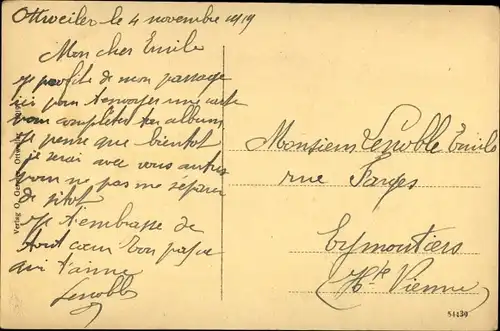 Ottweiler le 4 novembre 1919
Mon cher Emile
je profite de mon passage
ici pour t'envoyer une carte
pour completer ton album
je pense que bientot
je serai avec vous autres
pour ne pas me séparer
de sitot
je t'embrasse de
tout cœur ton papa
qui t'aime
Lenoble
Monsieur Lenoble Emile
rue Farges
Eymoutiers
Hte Vienne
Verlag O.
51130